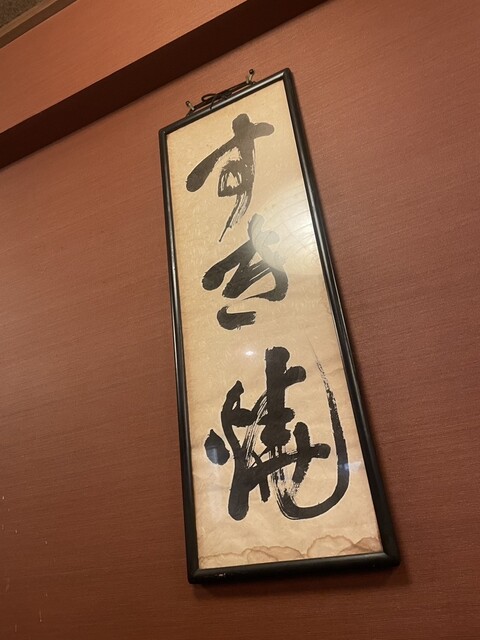 すき焼